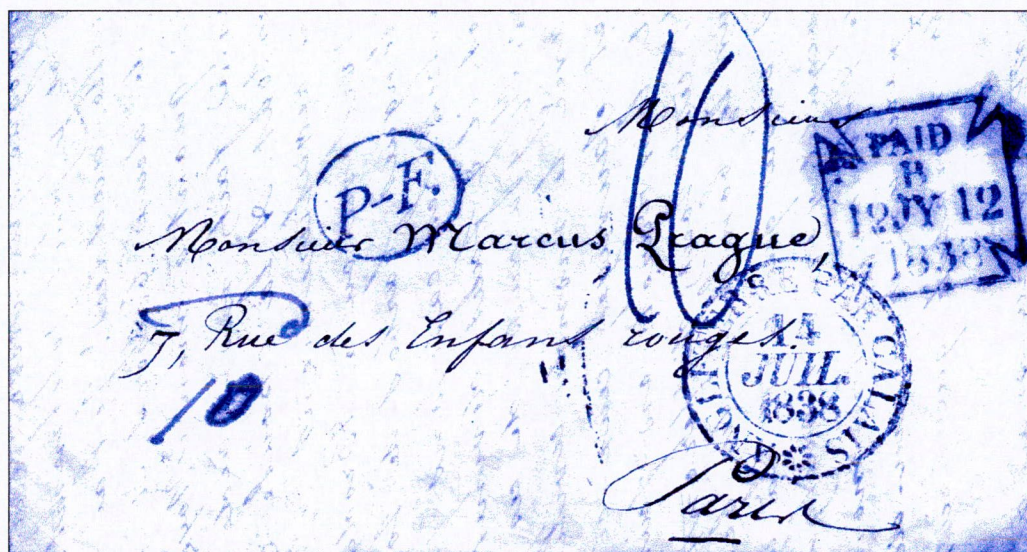 Monsieur
PAID
12JY12
1838
P-F.
Monsieur Marcus Prague,
7, Rue des Enfans rouges.
ANGLETERRE PAR CALAIS
JUIL.
1838
10
Paris